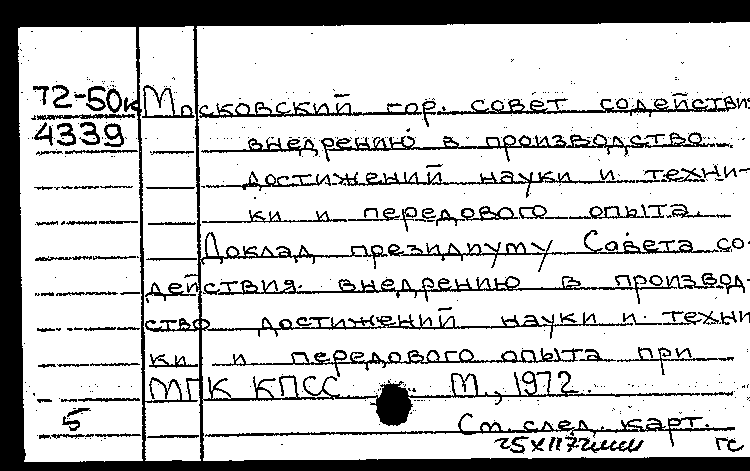 72-50к Московский гор. совет содействия
4339 внедрению в производство
достижений науки и техни-
ки и передового опыта.
Доклад президиуму Совета со-
действия внедрению в производ-
ство достижений науки и техни
ки и передового опыта при
МГК КПСС М., 1972.
5 См. след. карт.
25XII72 гс